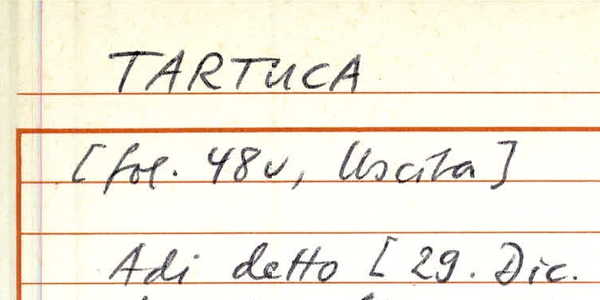 TARTUCA
[fol. 48v, Uscita]
Adi detto [29. Dic.